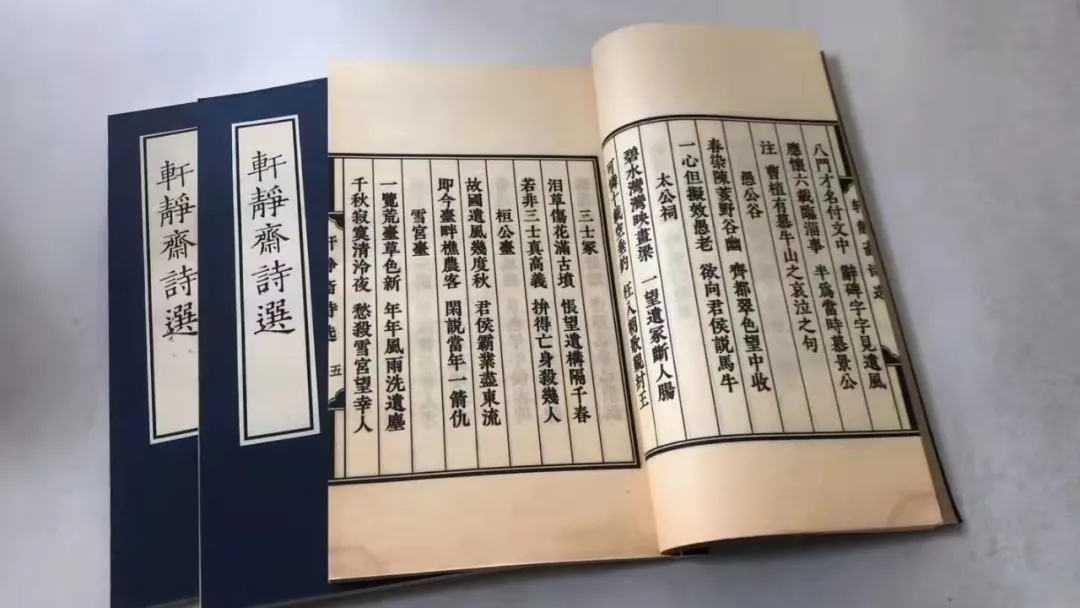 八鬥才名付文中 辭碑字字見遺風
應懷六載臨淄事 半爲當時慕景公
注 曹植有慕牛山之哀泣之句
愚公谷
春染陳荄野谷幽 齊都翠色望中收
一心但擬效愚老 欲向君侯説馬牛
太公祠
碧水灣灣映畫梁 一望遺冢斷人腸
封王
三士冢
泪草傷花滿古墳 悵望遺構隔千春
若非三士真高義 拚得亡身殺幾人
桓公臺
故國遺風幾度秋 君侯霸業盡東流
即今臺畔樵農客 閑説當年一箭仇
雪宮臺
一覽荒臺草色新 年年風雨洗遺塵
千秋寂寞清泠夜 愁殺雪宮望幸人
五
軒靜齋詩選
軒靜齋詩選